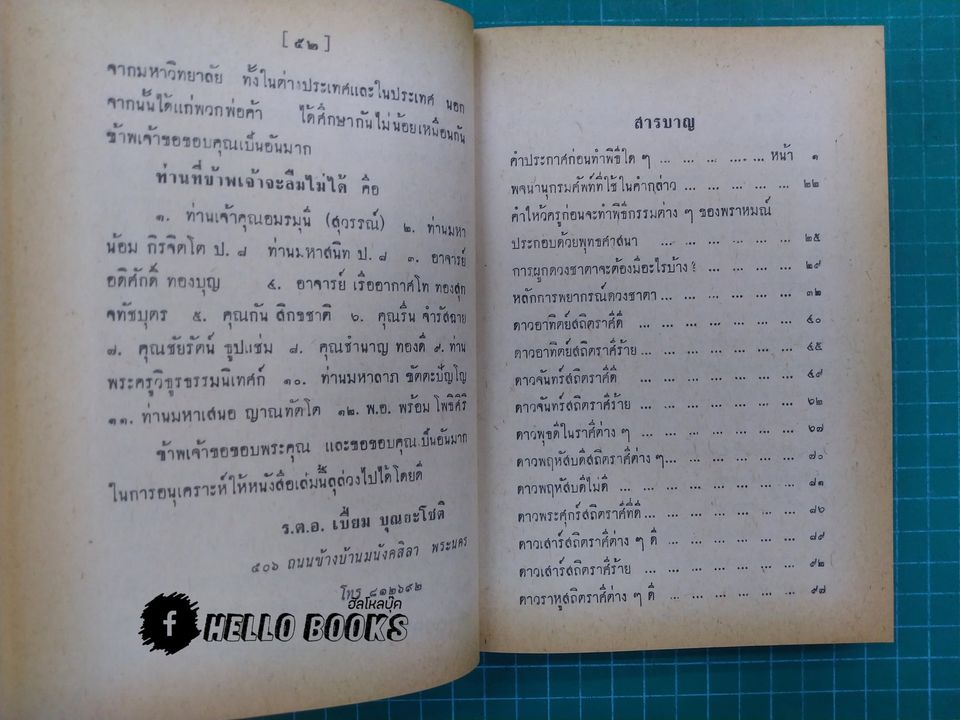 [ ๕๒ ]
จากมหาวิทยาลัย ทั้งในต่างประเทศและในประเทศ นอก
จากนั้นได้แก่พวกพ่อค้า ได้ศึกษากันไม่น้อยเหมือนกัน
ข้าพเจ้าขอขอบคุณเป็นอันมาก
ท่านที่ข้าพเจ้าจะลืมไม่ได้ คือ
๑. ท่านเจ้าคุณอมรมุนี (สุวรรณ์) ๒. ท่านมหา
น้อม กิรจิตโต ป. ๘ ท่านมหาสนิท ป. ๘ ๓. อาจารย์
อดิศักดิ์ ทองบุญ ๔. อาจารย์ เรืออากาศโท ทองสุก
จทัชบุตร ๕. คุณกัน สิกขชาติ ๖. คุณรื่น จำรัสฉาย
๗. คุณชัยรัตน์ ธูปแช่ม ๘. คุณชำนาญ ทองดี ๙. ท่าน
พระครูวิฑูรธรรมนิเทศก์ ๑๐. ท่านมหาลาภ ขัตตะปัญโญ
๑๑. ท่านมหาเสนอ ญาณทัตโต ๑๒. พ.อ. พร้อม โพธิคีรี
ข้าพเจ้าขอขอบพระคุณ และขอขอบคุณเป็นอันมาก
ในการอนุเคราะห์ให้หนังสือเล่มนี้ลุล่วงไปได้โดยดี
ร.ต.อ. เปี่ยม บุณยะโชติ
๔๐๖ ถนนข้างบ้านมนังคสิลา พระนคร
โทร ๘๑๒๖๙๒
ฮัลโหลบุ๊ค
f HELLO BOOKS
สารบาญ
คำประกาศก่อนทำพิธีใด ๆ ... ... ... ... ... หน้า ๑
พจนานุกรมศัพท์ที่ใช้ในคำกล่าว ... ... ... ... ... ๒๒
คำไหว้ครูก่อนจะทำพิธีกรรมต่าง ๆ ของพราหมณ์
ประกอบด้วยพุทธศาสนา ... ... ... ... ... ๒๕
การผูกดวงชาตาจะต้องมีอะไรบ้าง? ... ... ... ... ๒๙
หลักการพยากรณ์ดวงชาตา ... ... ... ... ... ... ๓๒
ดาวอาทิตย์สถิตราศีดี ... ... ... ... ... ... ๔๐
ดาวอาทิตย์สถิตราศีร้าย ... ... ... ... ... ... ๔๕
ดาวจันทร์สถิตราศีดี ... ... ... ... ... ... ๔๙
ดาวจันทร์สถิตราศีร้าย ... ... ... ... ... ... ๖๒
ดาวพุธดีในราศีต่าง ๆ ... ... ... ... ... ... ๖๗
ดาวพฤหัสบดีสถิตราศีต่าง ๆ ... ... ... ... ... ๗๐
ดาวพฤหัสบดีไม่ดี ... ... ... ... ... ... ๘๑
ดาวพระศุกร์สถิตราศีที่ดี ... ... ... ... ... ... ๘๖
ดาวเสาร์สถิตราศีต่าง ๆ ดี ... ... ... ... ... ๘๙
ดาวเสาร์สถิตราศีร้าย ... ... ... ... ... ... ๙๒
ดาวราหูสถิตราศีต่าง ๆ ดี ... ... ... ... ... ๙๗